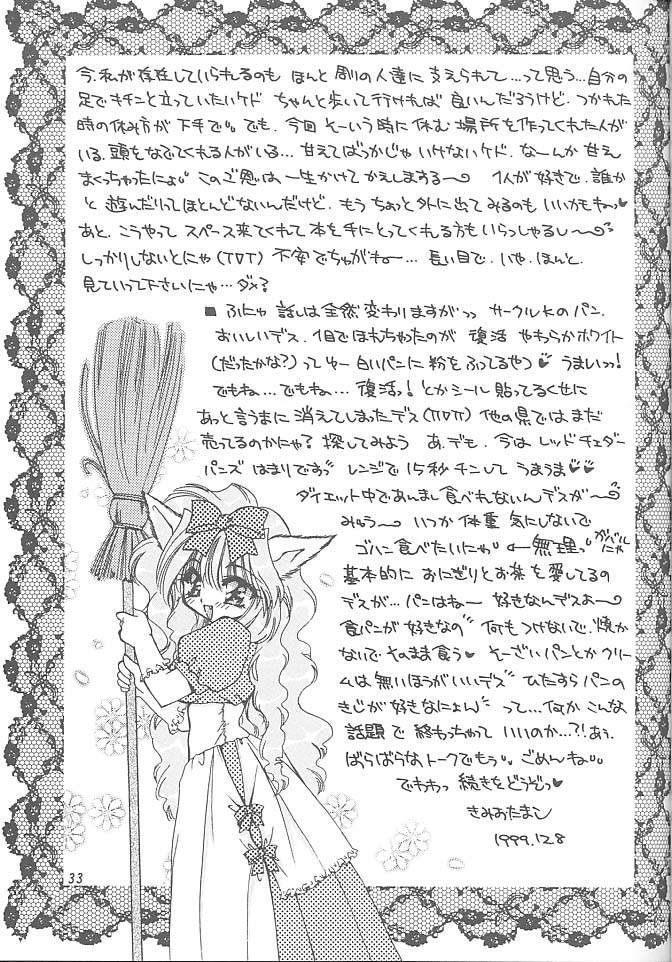 今、私が存在していられるのも ほんと 周りの人達に 支えられて…って思う…自分の
足でキチンと立っていたいケド ちゃんと歩いて行ければ 良いんだろうけど、つかれた
時の休み方が 下手で。でも、今回 そーいう時に休む 場所を作ってくれた人が
いる、頭をなでてくれる人がいる… 甘えてばっかじゃ いけないケド、なーんか 甘え
まくっちゃったにょ。このご恩は一生かけて かえしまする〜 1人が好きで、誰か
と 遊んだりってほとんどないんだけど、もう ちょっと外に出てみるのも いいかもねっ♥
あと、こうやって スペース来てくれて 本を手にとってくれる方も いらっしゃるし〜
しっかりしないとにゃ(TОT) 不安でちゅがねー… 長い目で、いや、ほんと、
見ていって下さいにゃ…ダメ?
■ ふにゃ 話しは全然変わりますがっっ サークルKのパン、
おいしいデス、1日でほれちゃったのが 復活 やわらかホワイト
(だったかな?)ってゆー 白いパンに粉をふってるやつ♥ うまいっっ!
でもね…でもね… 復活っ!とかシール貼ってるくせに
あっと言うまに 消えてしまったデス(TОT) 他の県では まだ
売ってるのかにゃ? 探してみよう あ、でも、今は レッドチェダー
パニーズ はまりですっ レンジで15秒チンして うまうま♥♥
ダイエット中であんまし食べれないんデスが〜
みゅう〜 いつか 体重 気にしないで
ゴハン食べたいにゃ ←無理っ
基本的に おにぎりとお茶を愛してるの
デスが…パンはねー 好きなんデスよ〜
食パンが好きなの 何もつけないで、焼か
ないで そのまま食う そーざいパンとか クリー
ムは無いほうがいいデス ひたすら パンの
きじが好きなにょん って…何か こんな
話題で 終わっちゃって いいのか…?!あぅ
ばらばらな、トークでもぅ。ごめんね。
でわわっ 続きをどうぞっ♥
きみおたまこ
1999.12.8
33